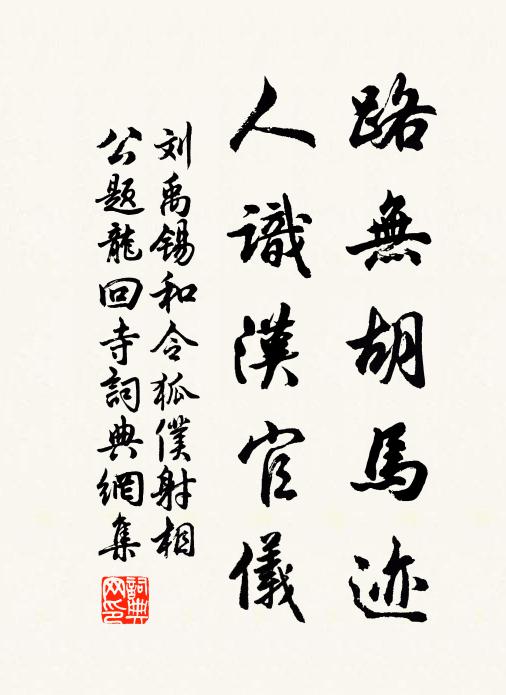 路無胡馬迹
人識漢官儀
刘禹锡和令狐僕射相
公题龍回寺詞典網集
詞典网印